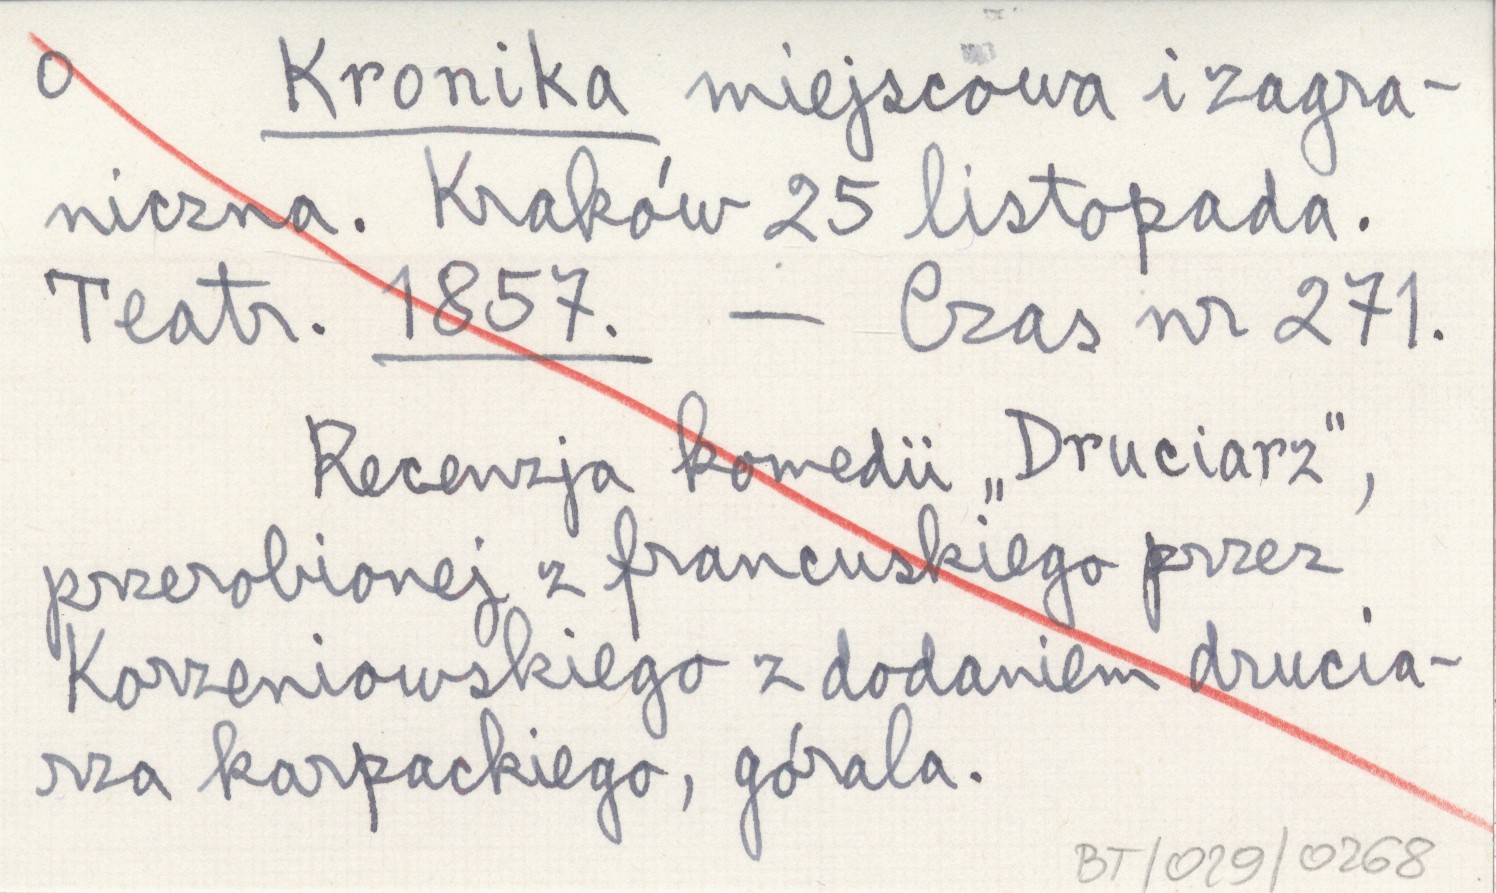 o Kronika miejscowa i zagra-
niczna. Kraków 25 listopada.
Teatr. 1857. — Czas nr 271.
Recenzja komedii „Druciarz",
przerobionej z francuskiego przez
Korzeniowskiego z dodaniem drucia-
rza karpackiego, górala.
BT/029/0268